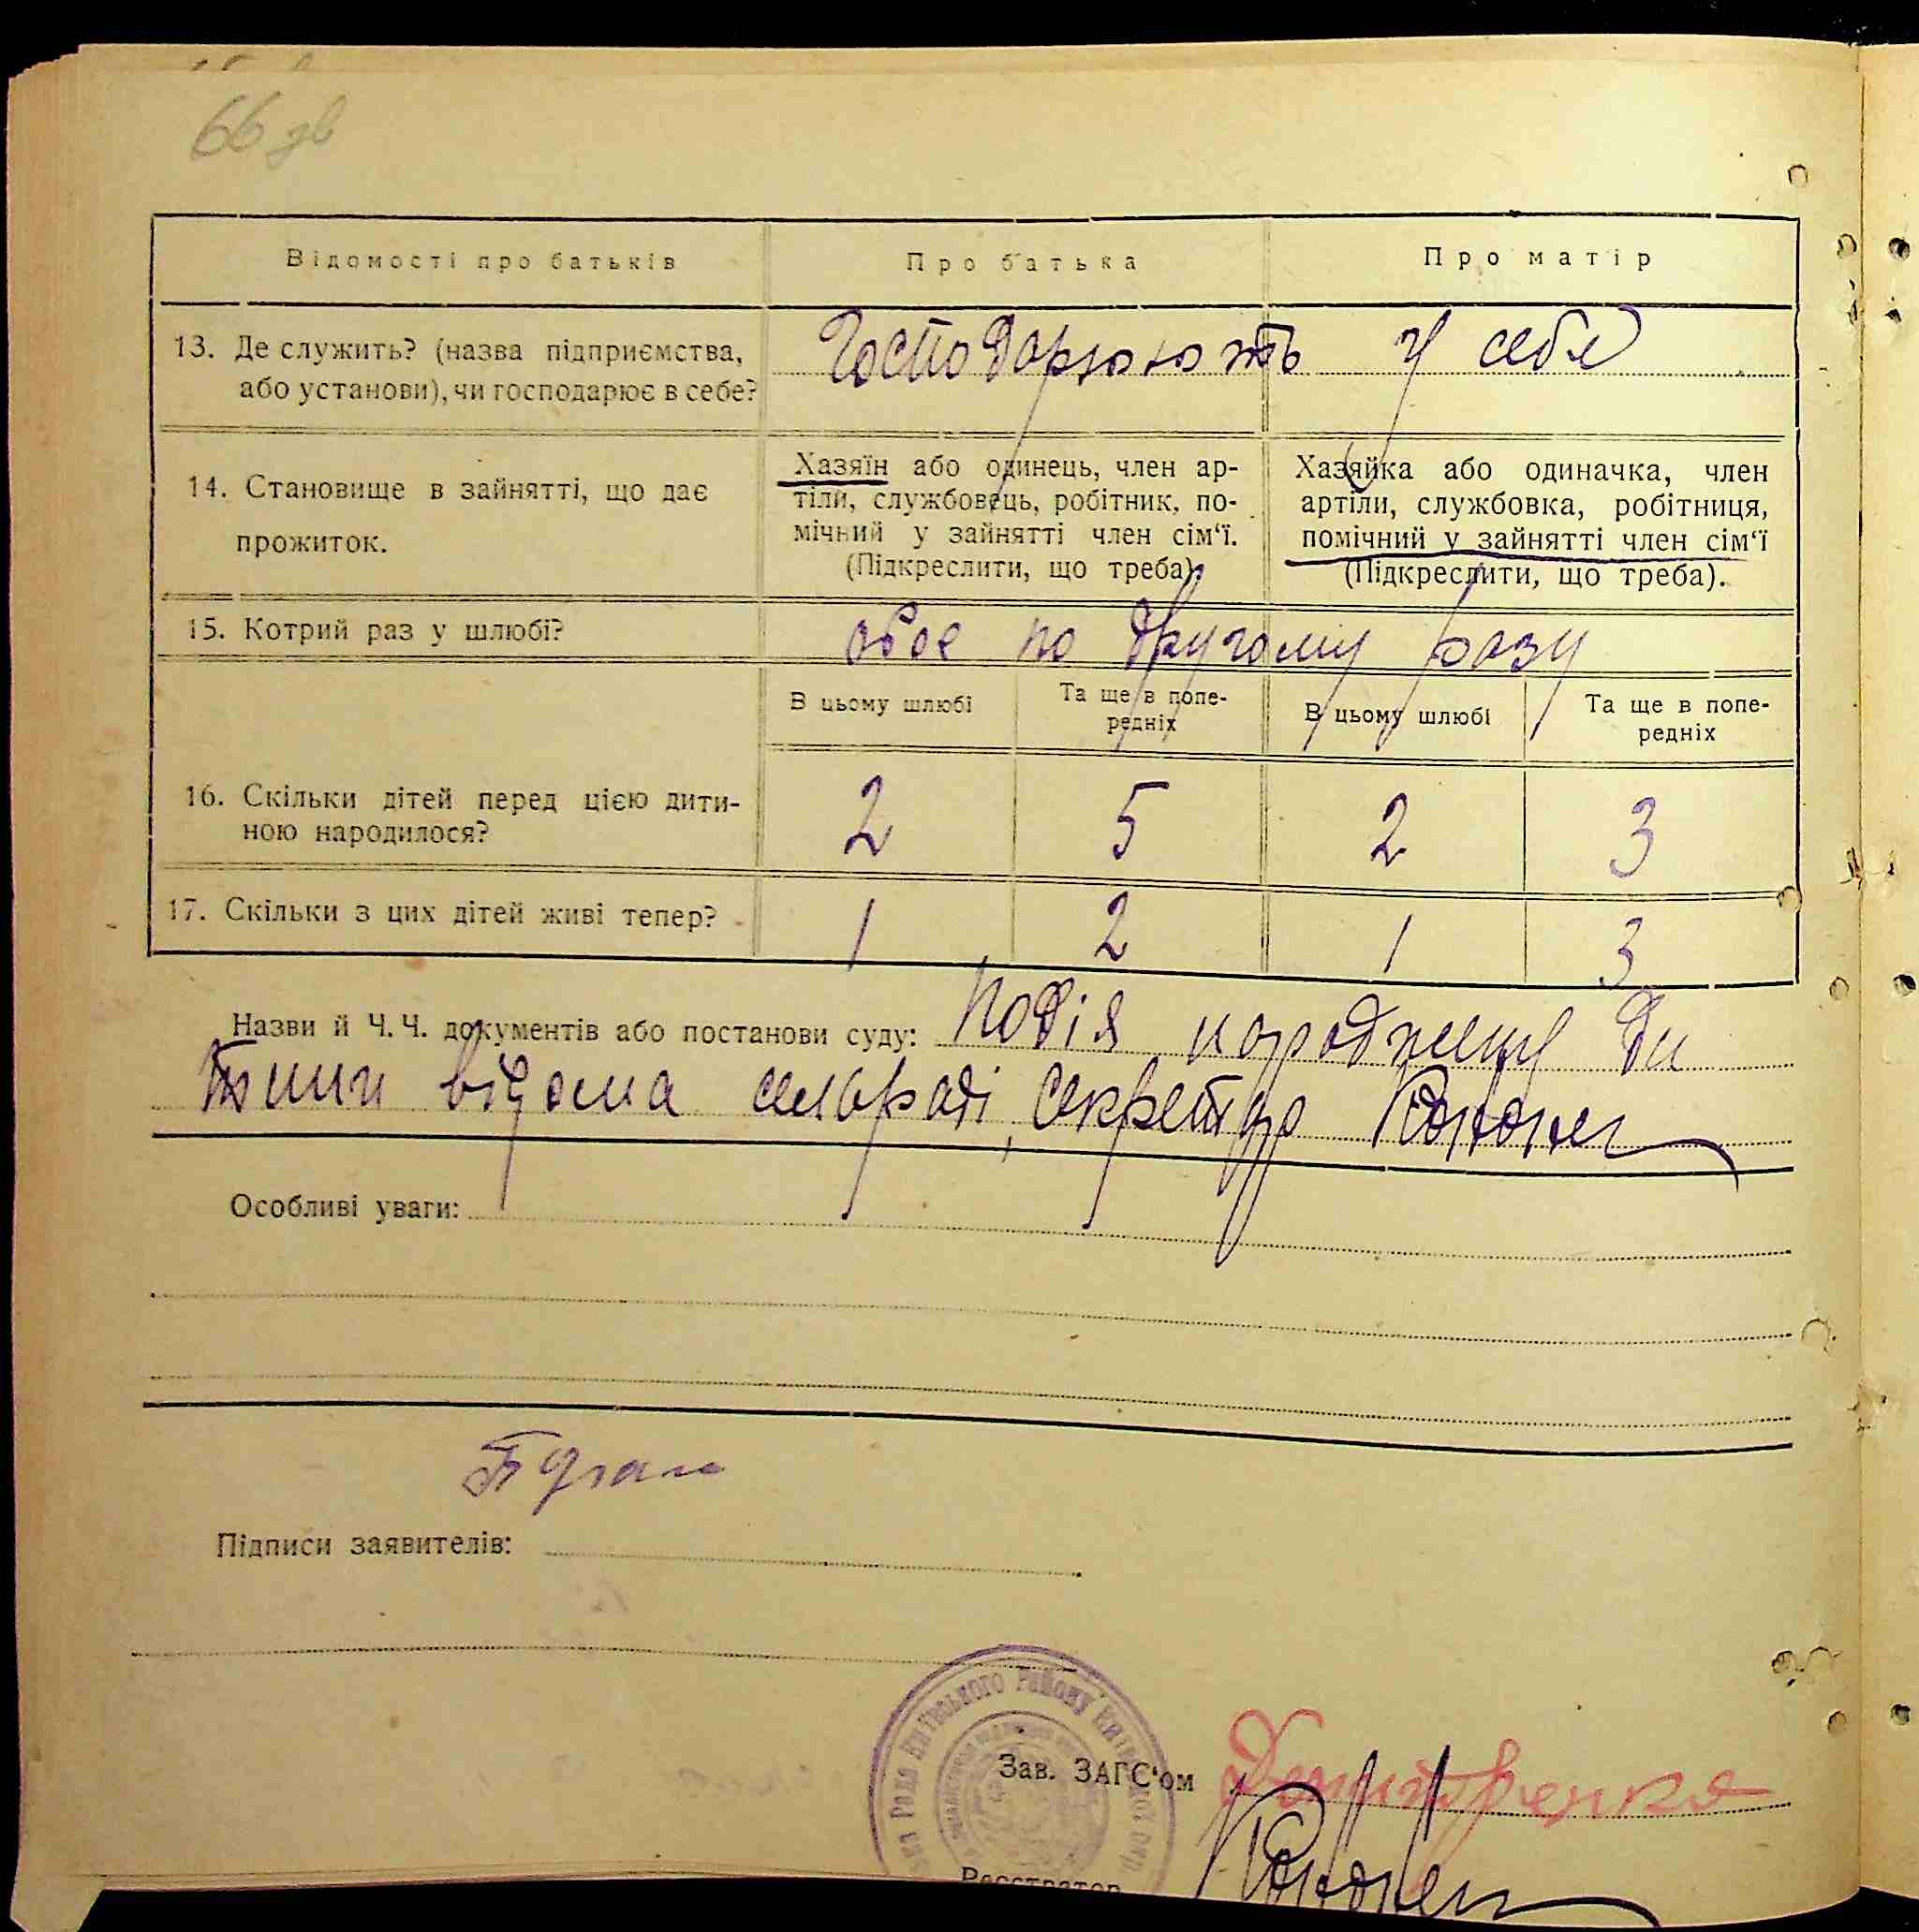 66 зв
Відомості про батьків
Про батька
Про матір
13. Де служить? (назва підприємства,
або установи), чи господарює в себе?
Господарюють у себе
14. Становище в зайнятті, що дає
прожиток.
Хазяїн або одинець, член ар-
тіли, службовець, робітник, по-
мічний у зайнятті член сім‘ї.
(Підкреслити, що треба).
Хазяйка або одиначка, член
артіли, службовка, робітниця,
помічний у зайнятті член сім‘ї
(Підкреслити, що треба).
15. Котрий раз у шлюбі?
обоє по другому разу
В цьому шлюбі
Та ще в попе-
редніх
В цьому шлюбі
Та ще в попе-
редніх
16. Скільки дітей перед цією дити-
ною народилося?
2 5 2 3
17. Скільки з цих дітей живі тепер?
1 2 1 3
Назви й Ч. Ч. документів або постанови суду: Подія народженну ди
тини відома сільраді, секретар
Особливі уваги:
Підписи заявителів:
Зав. ЗАГС‘ом
Реєстратор